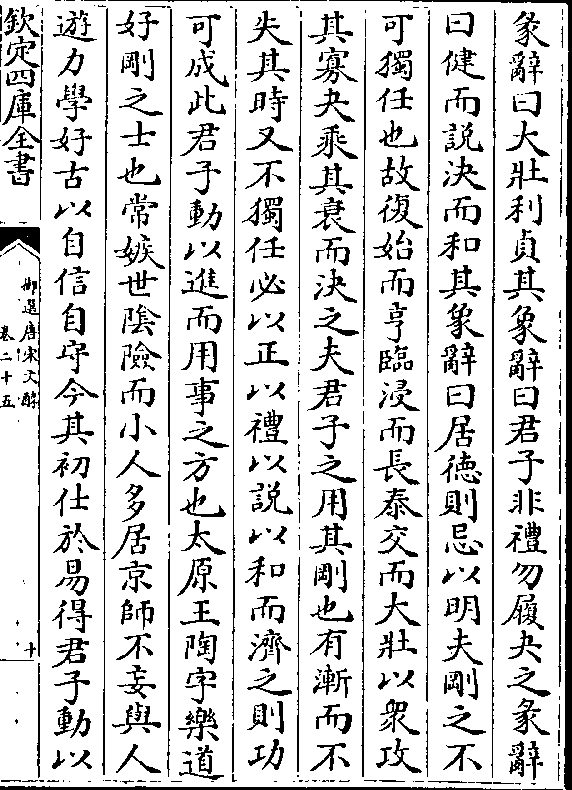 彖辭曰大壯利貞其象辭曰君子非禮勿履夬之彖辭
曰健而說決而和其象辭曰居徳則忌以明夫剛之不
可獨任也故復始而亨臨浸而長泰交而大壯以衆攻
其寡夬乘其衰而決之夫君子之用其剛也有漸而不
失其時又不獨任必以正以禮以說以和而濟之則功
可成此君子動以進而用事之方也太原王陶字樂道
好剛之士也常嫉世隂險而小人多居京師不妄與人
遊力學好古以自信自守今其初仕於易得君子動以
欽定四庫全書
御選唐宋文醇
卷二十五
十